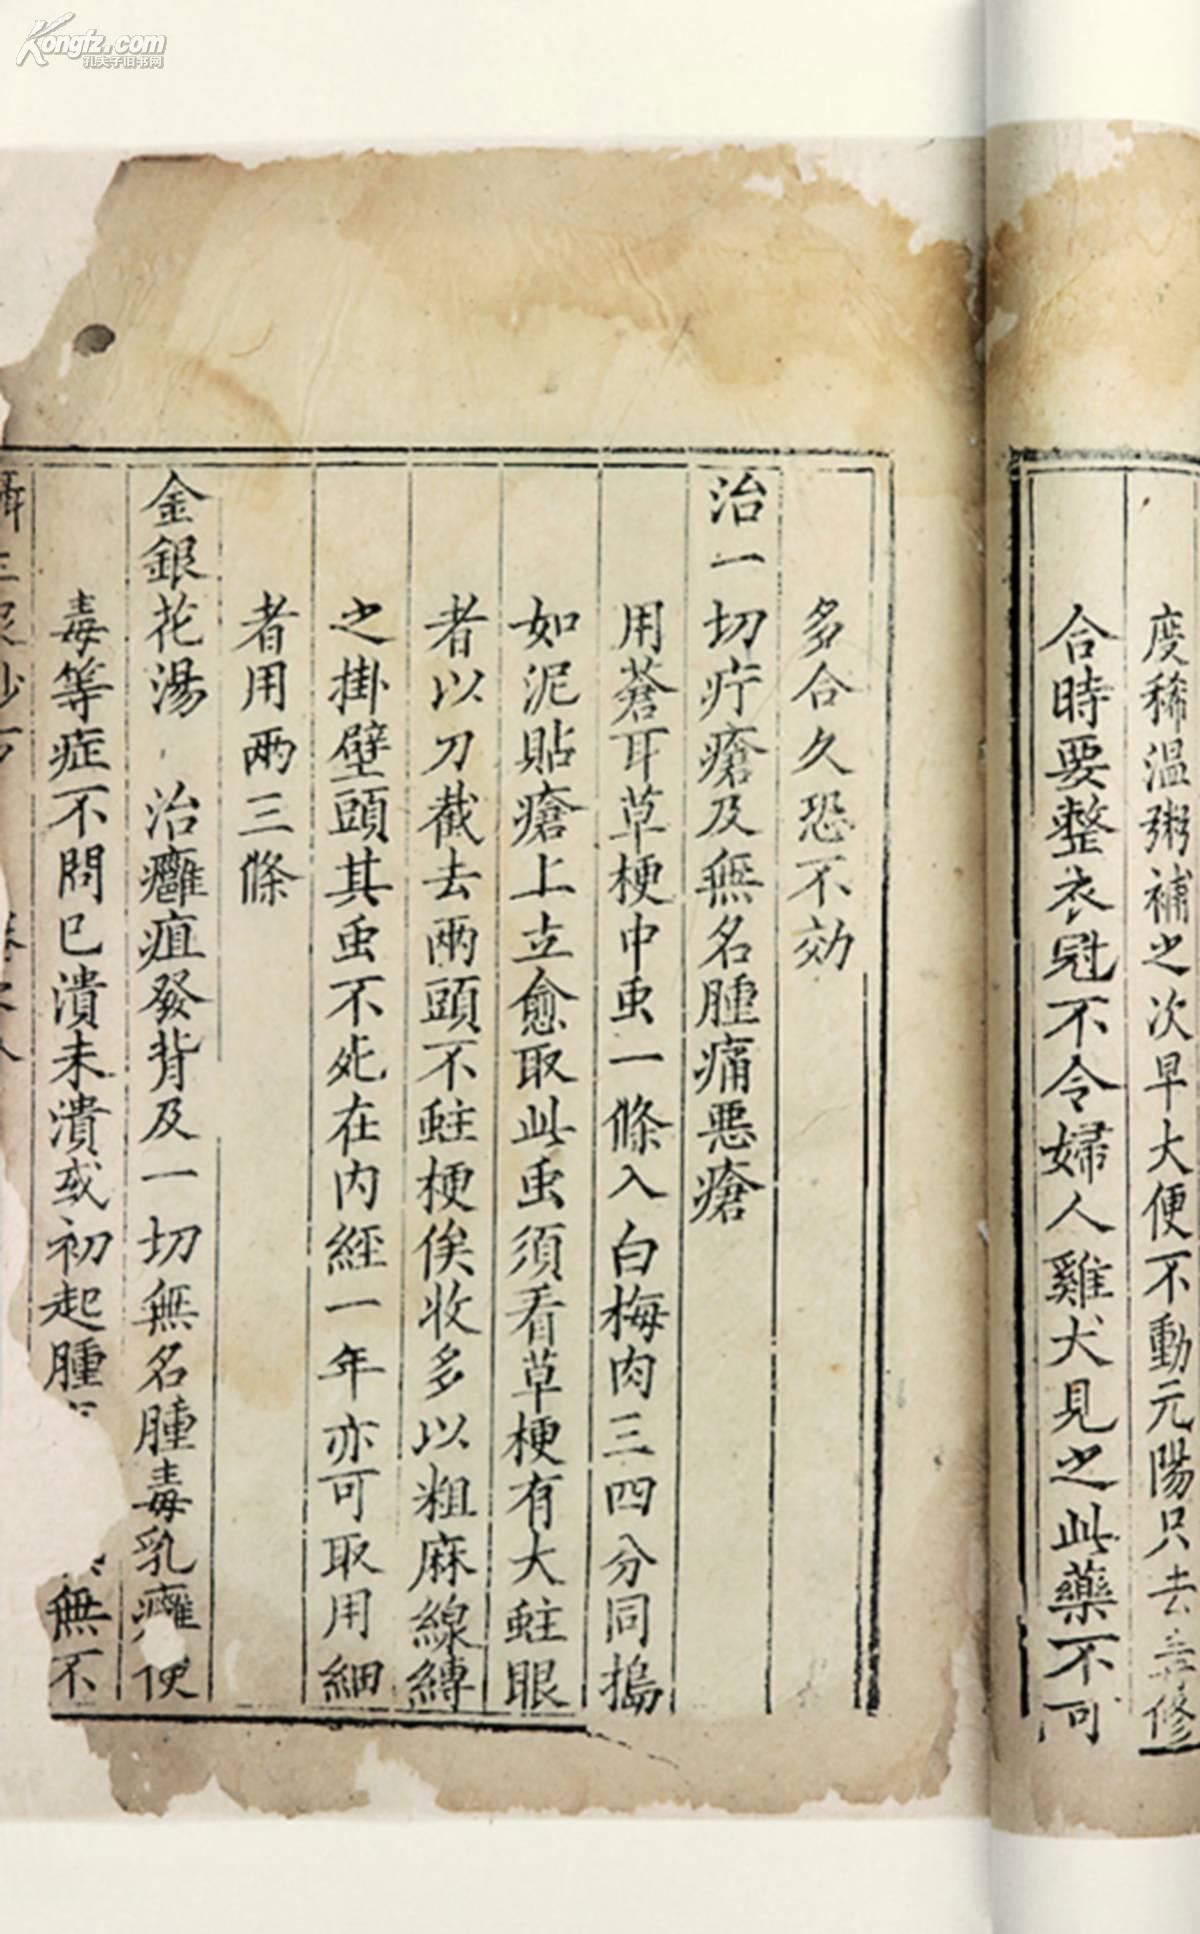 Kongfz.com
孔夫子旧书网
度稀溫粥補之次早大便不動元陽只去 修
合時要整衣冠不令婦人雞犬見之此藥不可
多合久恐不効
治一切疔瘡及無名腫痛惡瘡
用蒼耳草梗中虫一條入白梅肉三四分同搗
如泥貼瘡上立愈取此虫須看草梗有大蛀眼
者以刀截去兩頭不蛀梗俟收多以粗麻線縛
之掛壁頭其虫不死在內經一年亦可取用細
者用兩三條
金銀花湯 治癰疽發背及一切無名腫毒乳癰便
毒等症不問已潰未潰或初起腫 無不